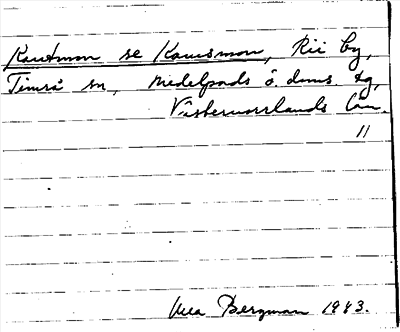 Kautmon se Kausmon, Rii by,
Timrå sn, Medelpads ö. doms. tg,
Västernorrlands län.
11
Bergman 1943.